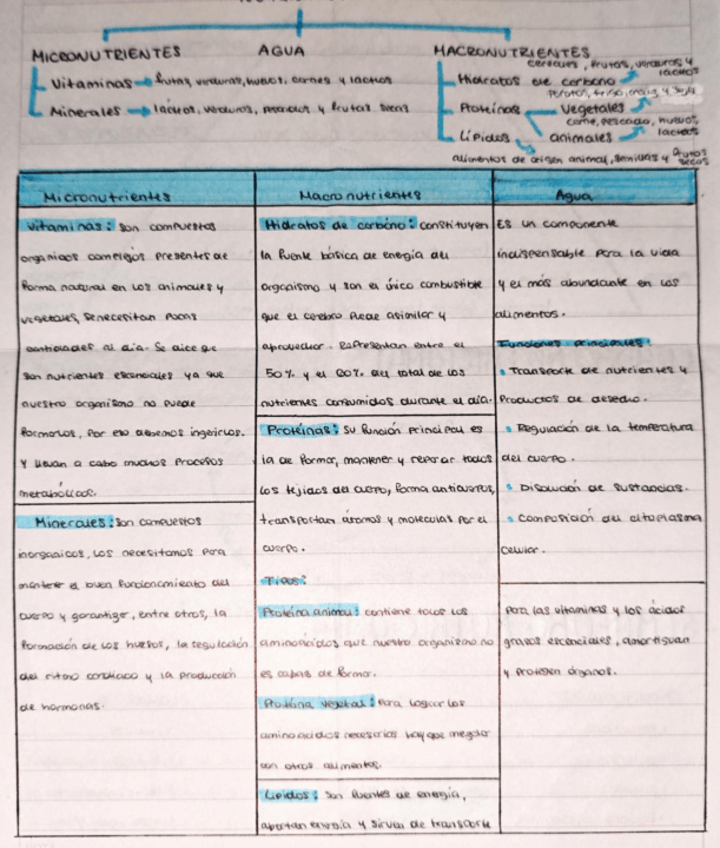 MICRONUTRIENTES
Vitaminas frutas, verduras, huevos, carnes y lácteos
Minerales lácteos, verduras, pescados y frutas secas
AGUA
MACRONUTRIENTES
cereales, frutas, verduras y
lácteos
Hidratos de carbono
Proteínas
Vegetales
carne, pescado, huevos,
lácteos
animales
Lípidos
alimentos de origen animal, semillas y frutos
secos
Micronutrientes
Vitaminas: son compuestos
organicos complejos presentes de
forma natural en los animales y
vegetales, se necesitan pocas
cantidades al día. Se dice que
son nutrientes esenciales ya que
nuestro organismo no puede
formarlos, por eso debemos ingerirlos.
Y llevan a cabo muchos procesos
metabólicos.
Minerales: Son compuestos
inorganicos, los necesitamos para
mantener el buen funcionamiento del
cuerpo y garantizar, entre otros, la
formación de los huesos, la regulación
del ritmo cardiaco y la producción
de hormonas.
Macronutrientes
Hidratos de carbono: constituyen
la fuente básica de energía del
organismo y son el único combustible
que el cerebro puede asimilar y
aprovechar. Representan entre el
50% y el 60% del total de los
nutrientes consumidos durante el día.
Proteínas: Su función principal es
la de formar, mantener y reparar todos
los tejidos del cuerpo, forma anticuerpos,
transportan átomos y moleculas por el
cuerpo.
Tipos:
Proteína animal: contiene todos los
aminoácidos que nuestro organismo no
es capas de formar.
Proteína vegetal: Para lograr los
aminoacidos necesarios hay que mezclar
con otros alimentos.
Lípidos: Son fuentes de energía,
aportan energía y sirven de transporte
Agua
Es un componente
indispensable para la vida
y el más abundante en los
alimentos.
Funciones principales:
• Transporte de nutrientes y
Productos de desecho.
• Regulación de la temperatura
del cuerpo.
• Disolución de sustancias.
• Composición del citoplasma
celular.
para las vitaminas y los ácidos
grasos escenciales, amortiguan
y protegen órganos.